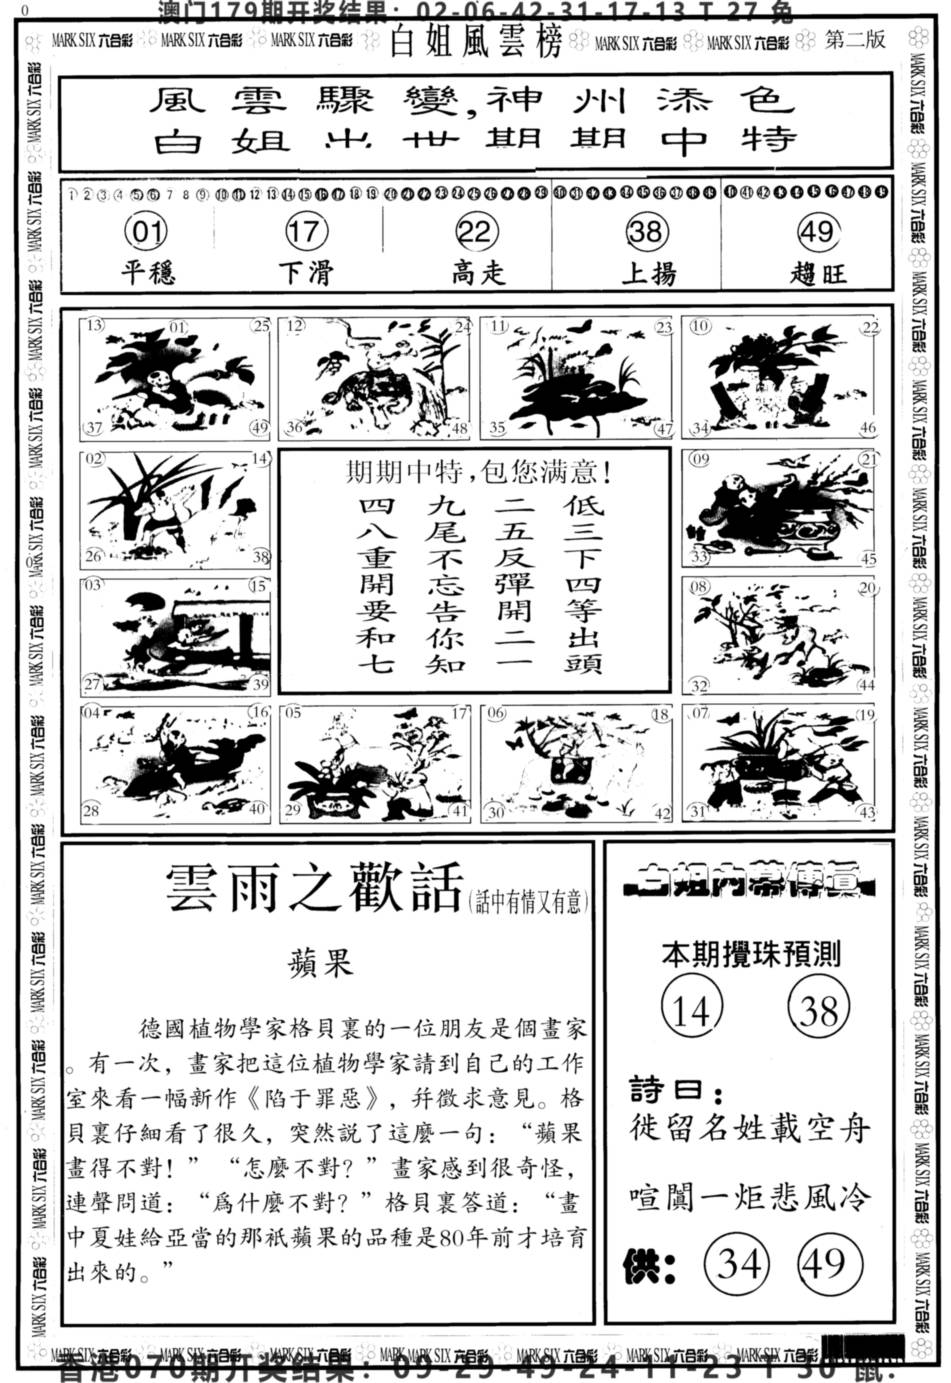 澳门179期开奖结果：02-06-42-31-17-13 T 27 兔
0
MARK SIX 六合彩 MARK SIX 六合彩 MARK SIX 六合彩 白姐風雲榜 MARK SIX 六合彩 MARK SIX 六合彩 第二版
風雲驟變,神州添色
白姐出世期期中特
1 2 3 4 5 6 7 8 9 10 11 12 13 14 15 16 17 18 19 20 21 22 23 24 25 26 27 28 29 30 31 32 33 34 35 36 37 38 39 40 41 42 43 44 45 46 47 48 49
01 17 22 38 49
平穩 下滑 高走 上揚 趨旺
13 01 25 12 24 11 23 10 22
37 49 36 48 35 47 34 46
02 14 09 21
26 38 33 45
03 15 08 20
27 39 32 44
期期中特,包您满意!
低三下四等出頭
二五反彈開二一
九尾不忘告你知
四八重開要和七
04 16 05 17 06 18 07 19
28 40 29 41 30 42 31 43
雲雨之歡話(話中有情又有意)
蘋果
德國植物學家格貝裏的一位朋友是個畫家
。有一次，畫家把這位植物學家請到自己的工作
室來看一幅新作《陷于罪惡》，幷徵求意見。格
貝裏仔細看了很久，突然説了這麼一句：“蘋果
畫得不對！”“怎麼不對？”畫家感到很奇怪，
連聲問道：“爲什麼不對？”格貝裏答道：“畫
中夏娃給亞當的那祇蘋果的品種是80年前才培育
出來的。”
白姐內幕傳真
本期攪珠預測
14 38
詩曰：
徙留名姓載空舟
喧闐一炬悲風冷
供： 34 49
MARK SIX 六合彩 MARK SIX 六合彩 MARK SIX 六合彩 MARK SIX 六合彩 MARK SIX 六合彩 MARK SIX 六合彩 MARK SIX 六合彩
香港070期开奖结果：09-29-49-24-11-23 T 30 鼠.